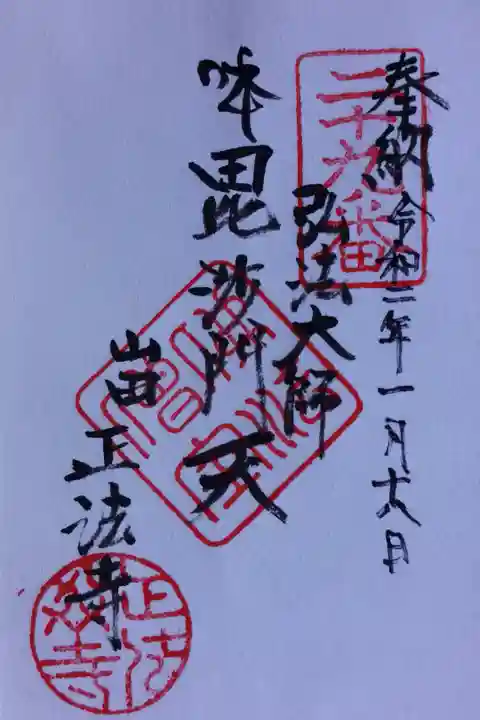 奉納 令和二年一月十八日
二十九番
弘法大師
味毘沙門天
山田 正法寺
正法寺